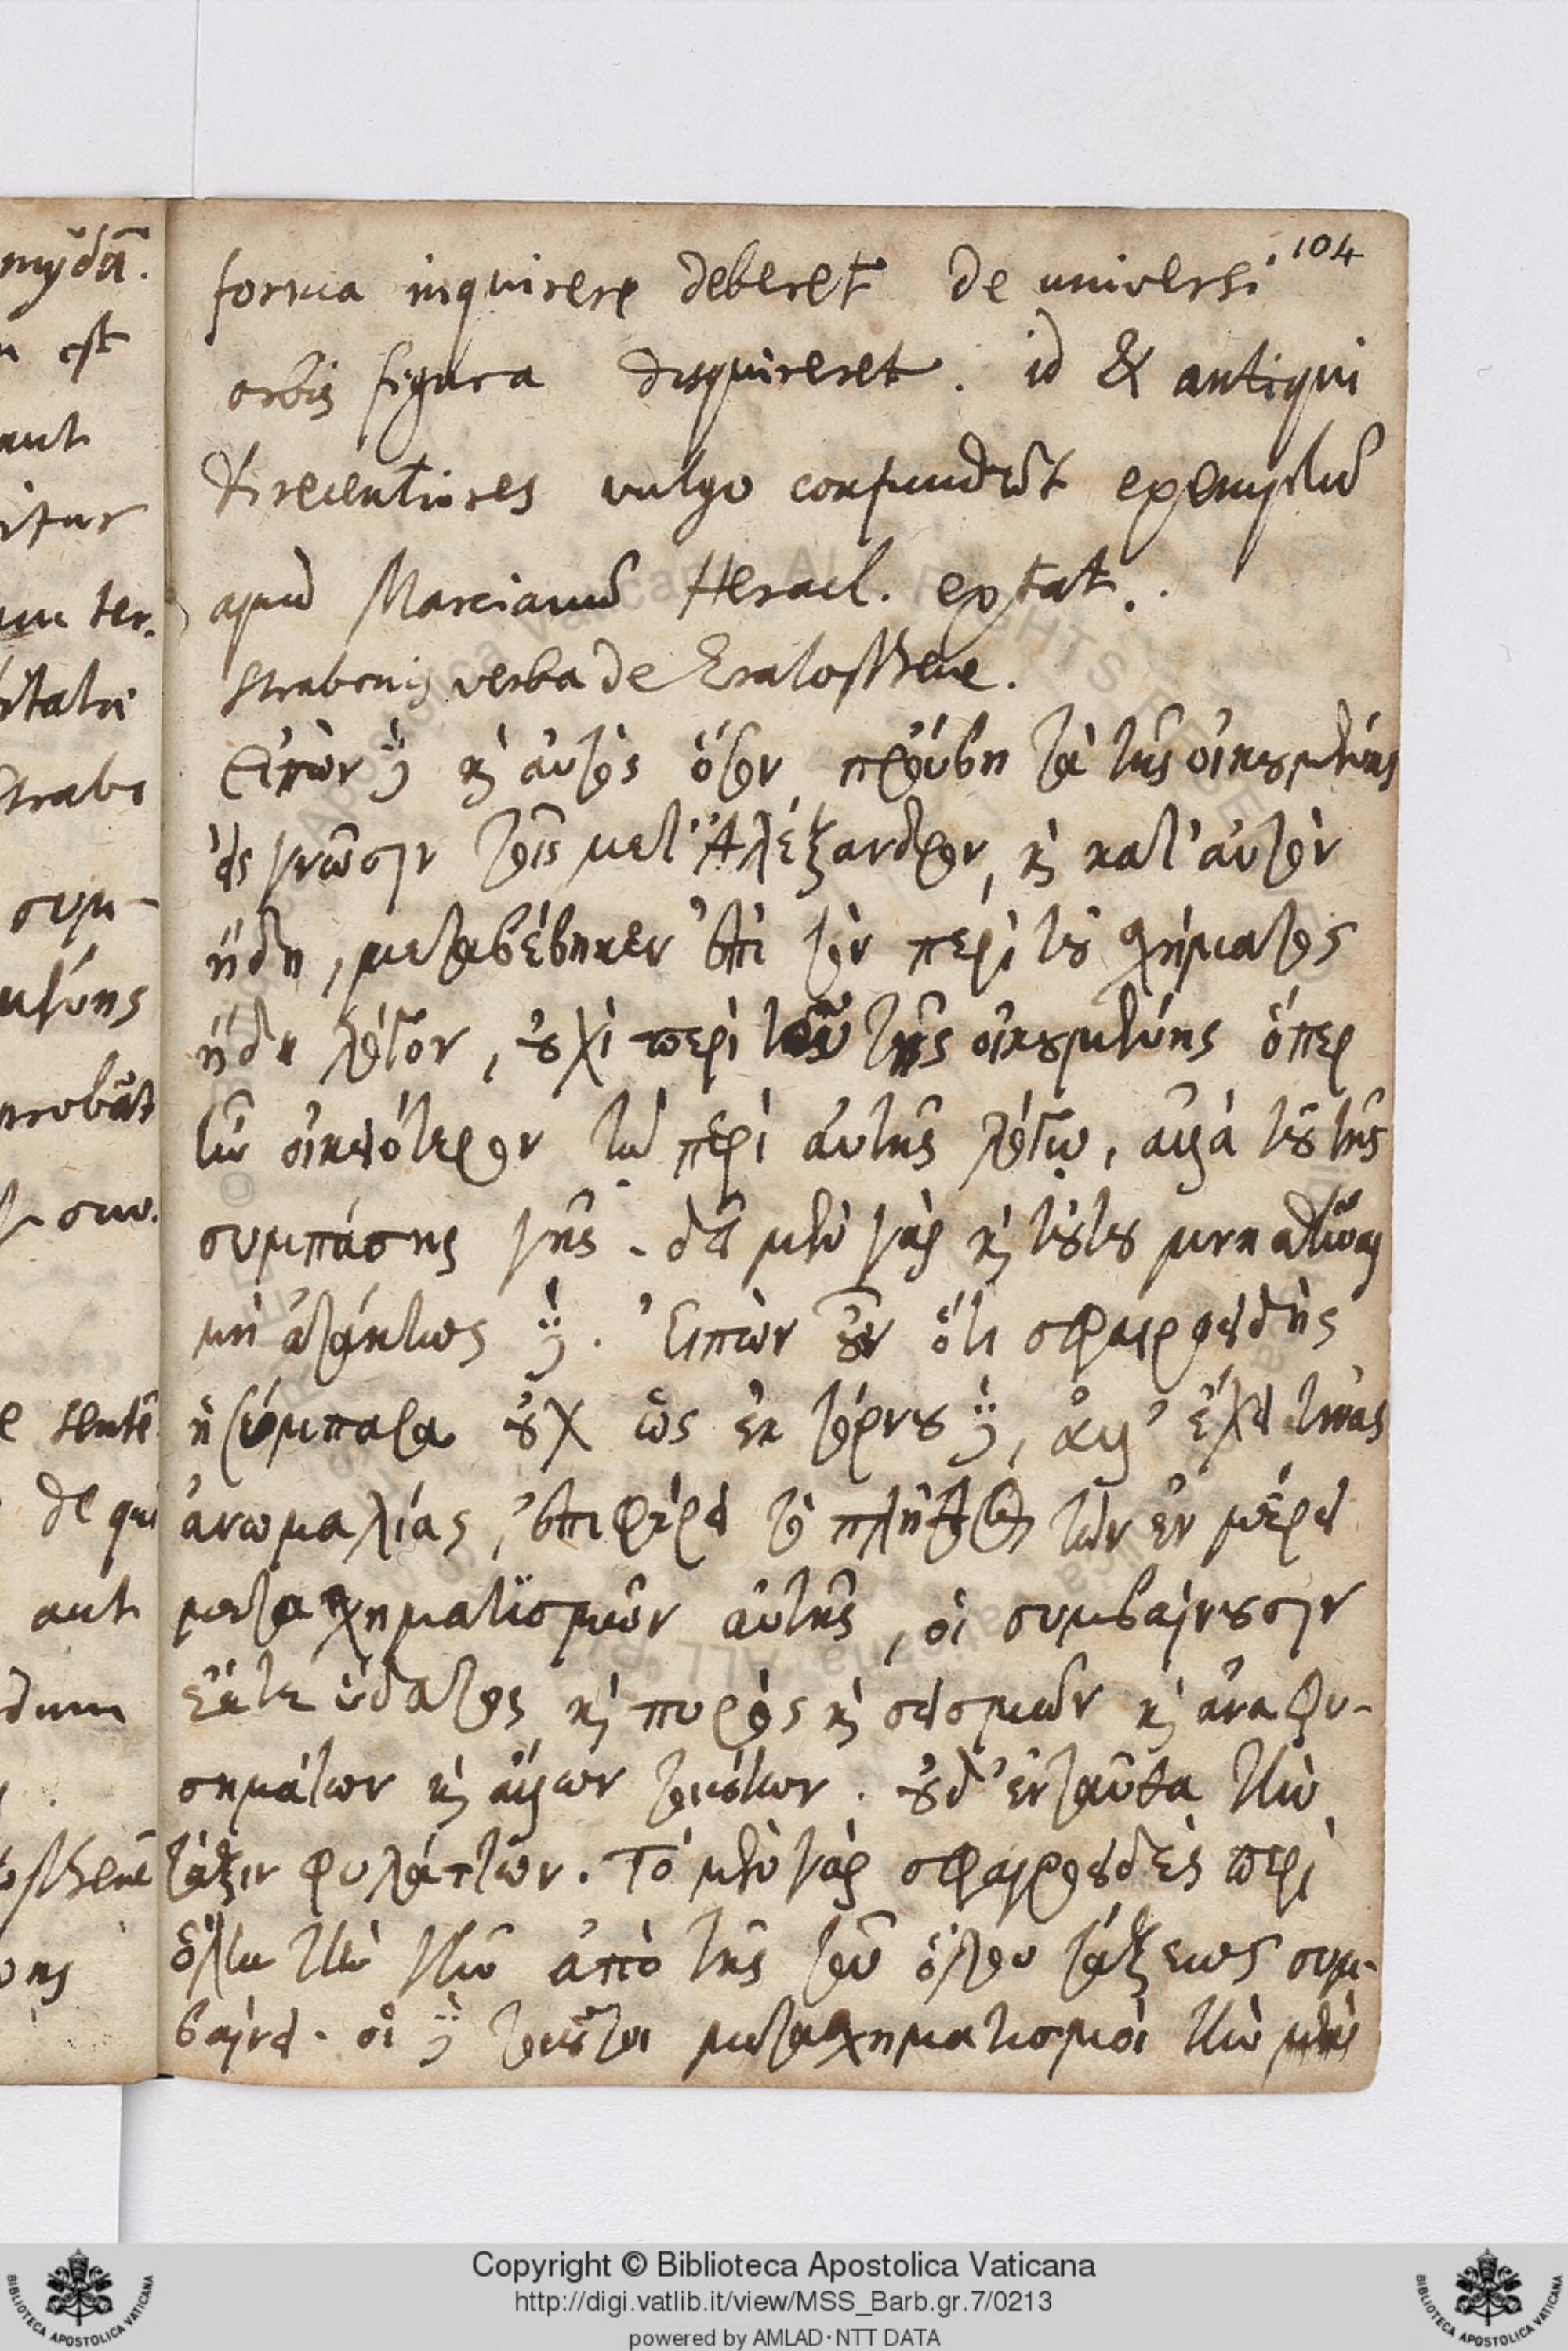 104
forma inquirere deberet de universi
orbis figura disquireret. id & antiqui
& recentiores vulgo confundũt exemplũ
apud Marcianũ Heracl. extat.
Strabonis verba de Eratosthene.
εἰπὼν δὲ κ̀ αὐτὸς ὅσον προύβη τὰ τῆς οἰκουμένης
εἰς γνῶσιν τοῖς μετ' Ἀλέξανδρον, κ̀ κατ' αὐτὸν
ἤδη, μεταβέβηκεν ἐπὶ τὸν περὶ τοῦ σχήματος
ἤδη λόγον, οὐχὶ περὶ τοῦ τῆς οἰκουμένης ὅπερ
ἦν οἰκειότερον τῷ περὶ αὐτῆς λόγῳ, ἀλλὰ τοῦ τῆς
συμπάσης γῆς. δεῖ μὲν γὰρ κ̀ τούτου μνησθῆναι
μὴ ἀτάκτως δέ. Εἰπὼν οὖν ὅτι σφαιροειδὴς
ἡ σύμπασα οὐχ ὡς ἐκ τόρνου δέ, ἀλλ' ἔχει τινὰς
ἀνωμαλίας, ἐπιφέρει τὸ πλῆθος τῶν ἐν μέρει
μετασχηματισμῶν αὐτῆς, οἱ συμβαίνουσιν
ἔκτε ὕδατος κ̀ πυρὸς κ̀ σεισμῶν κ̀ ἀναφυ-
σημάτων κ̀ ἄλλων τοιούτων. οὐδ' ἐνταῦθα τὴν
τάξιν φυλάττων. Τὸ μὲν γὰρ σφαιροειδὲς περὶ
ὅλην τὴν γῆν ἀπὸ τῆς τοῦ ὅλου τάξεως συμ-
βαίνει. οἱ δὲ τοιοῦτοι μετασχηματισμοὶ τὴν μὲν
Copyright © Biblioteca Apostolica Vaticana
http://digi.vatlib.it/view/MSS_Barb.gr.7/0213
powered by AMLAD·NTT DATA